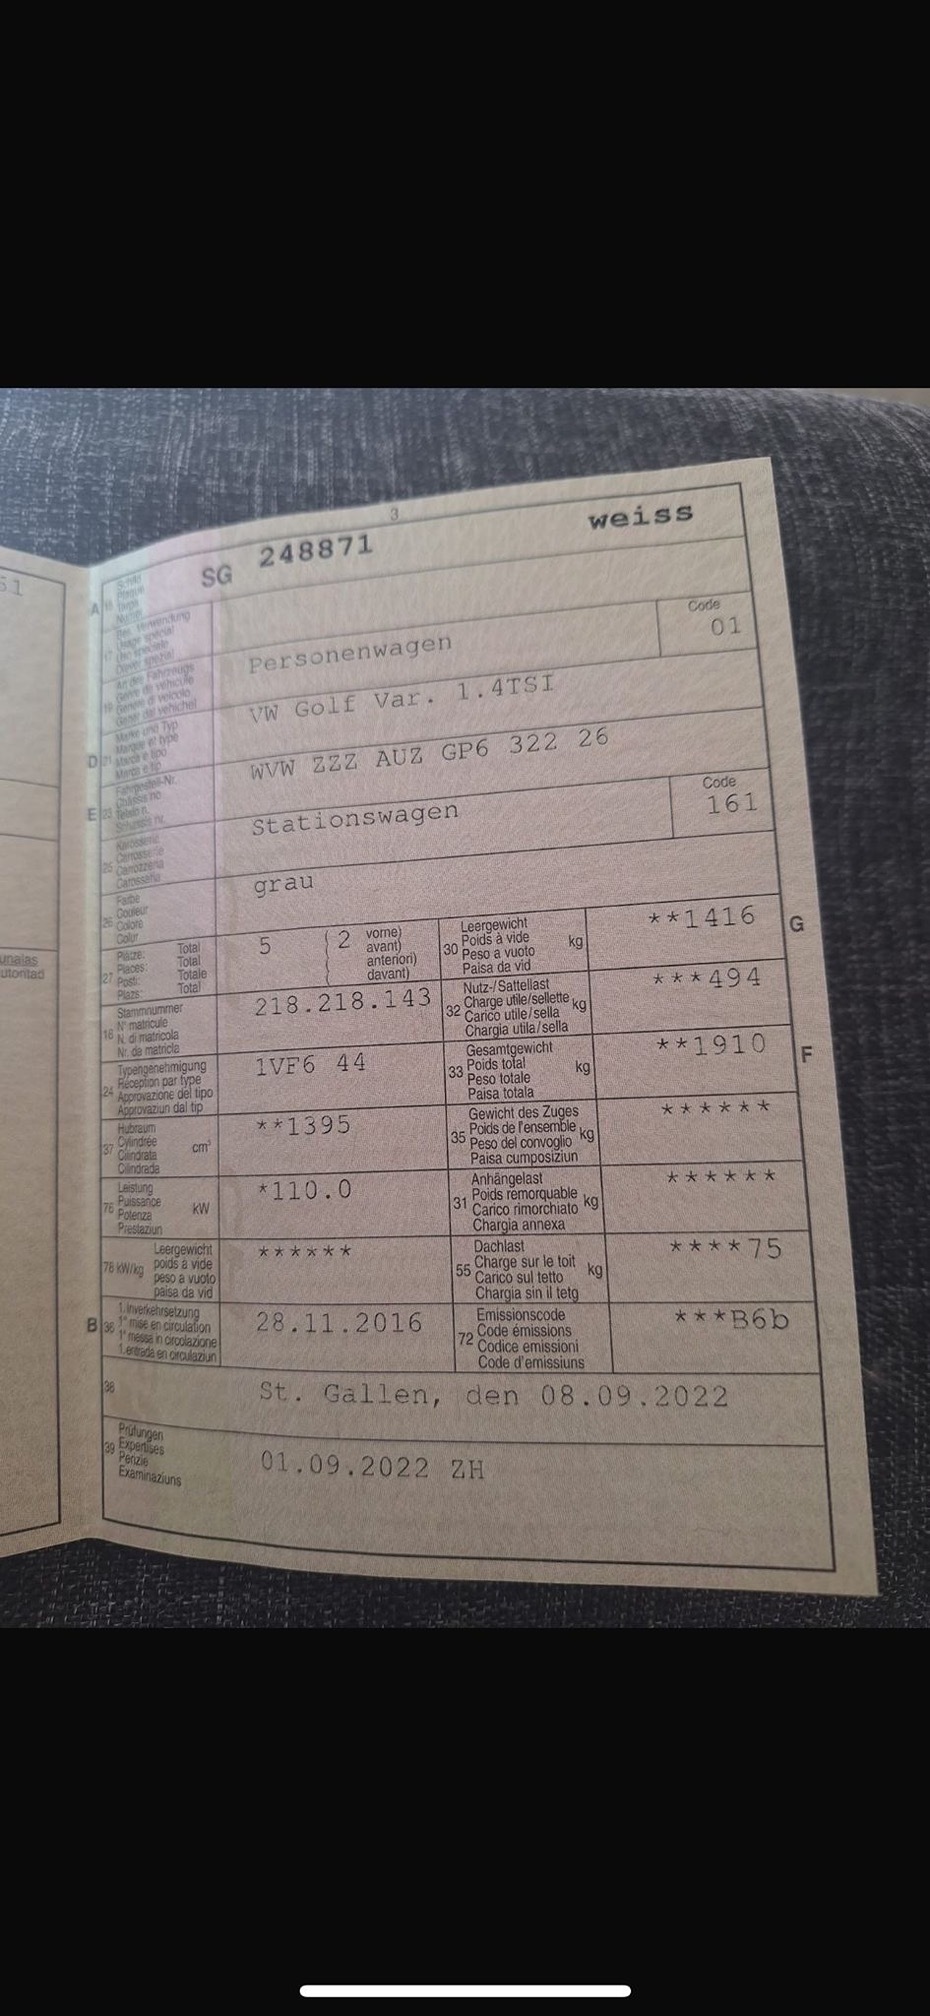 51
unaias
utoritad
3
A 15 Schild Plaque Targa Numer
SG 248871 weiss
17
Code
01
19 Art des Fahrzeugs
Genre de véhicule
Genere di veicolo
Gener dal vehichel
Personenwagen
D 21 Marke und Typ
Marque et type
Marca e tipo
Marca e tip
VW Golf Var. 1.4TSI
E 23 Fahrgestell-Nr.
Châssis no
Telaio n.
Schassis nr.
WVW ZZZ AUZ GP6 322 26
25 Karosserie
Carrosserie
Carrozzeria
Carossaria
Stationswagen
Code
161
26 Farbe
Couleur
Colore
Color
grau
27 Plätze: Total
Places: Total
Posti: Totale
Plazs: Total
5 ( 2 vorne)
avant)
anteriori)
davant)
30 Leergewicht
Poids à vide
Peso a vuoto
Paisa da vid
kg
**1416
G
18 Stammnummer
N° matricule
N. di matricola
Nr. da matricla
218.218.143
32 Nutz-/Sattellast
Charge utile/sellette
Carico utile/sella
Chargia utila/sella
kg
***494
24 Typengenehmigung
Réception par type
Approvazione del tipo
Approvaziun dal tip
1VF6 44
33 Gesamtgewicht
Poids total
Peso totale
Paisa totala
kg
**1910
F
37 Hubraum
Cylindrée
Cilindrata
Cilindrada
cm³
**1395
35 Gewicht des Zuges
Poids de l'ensemble
Peso del convoglio
Paisa cumposiziun
kg
******
76 Leistung
Puissance
Potenza
Prestaziun
kW
*110.0
31 Anhängelast
Poids remorquable
Carico rimorchiato
Chargia annexa
kg
******
78 kW/kg
Leergewicht
poids à vide
peso a vuoto
paisa da vid
******
55 Dachlast
Charge sur le toit
Carico sul tetto
Chargia sin il tetg
kg
****75
B 36 1. Inverkehrsetzung
1re mise en circulation
1a messa in circolazione
1. entrada en circulaziun
28.11.2016
72 Emissionscode
Code émissions
Codice emissioni
Code d'emissiuns
***B6b
38
St. Gallen, den 08.09.2022
39 Prüfungen
Expertises
Perizie
Examinaziuns
01.09.2022 ZH